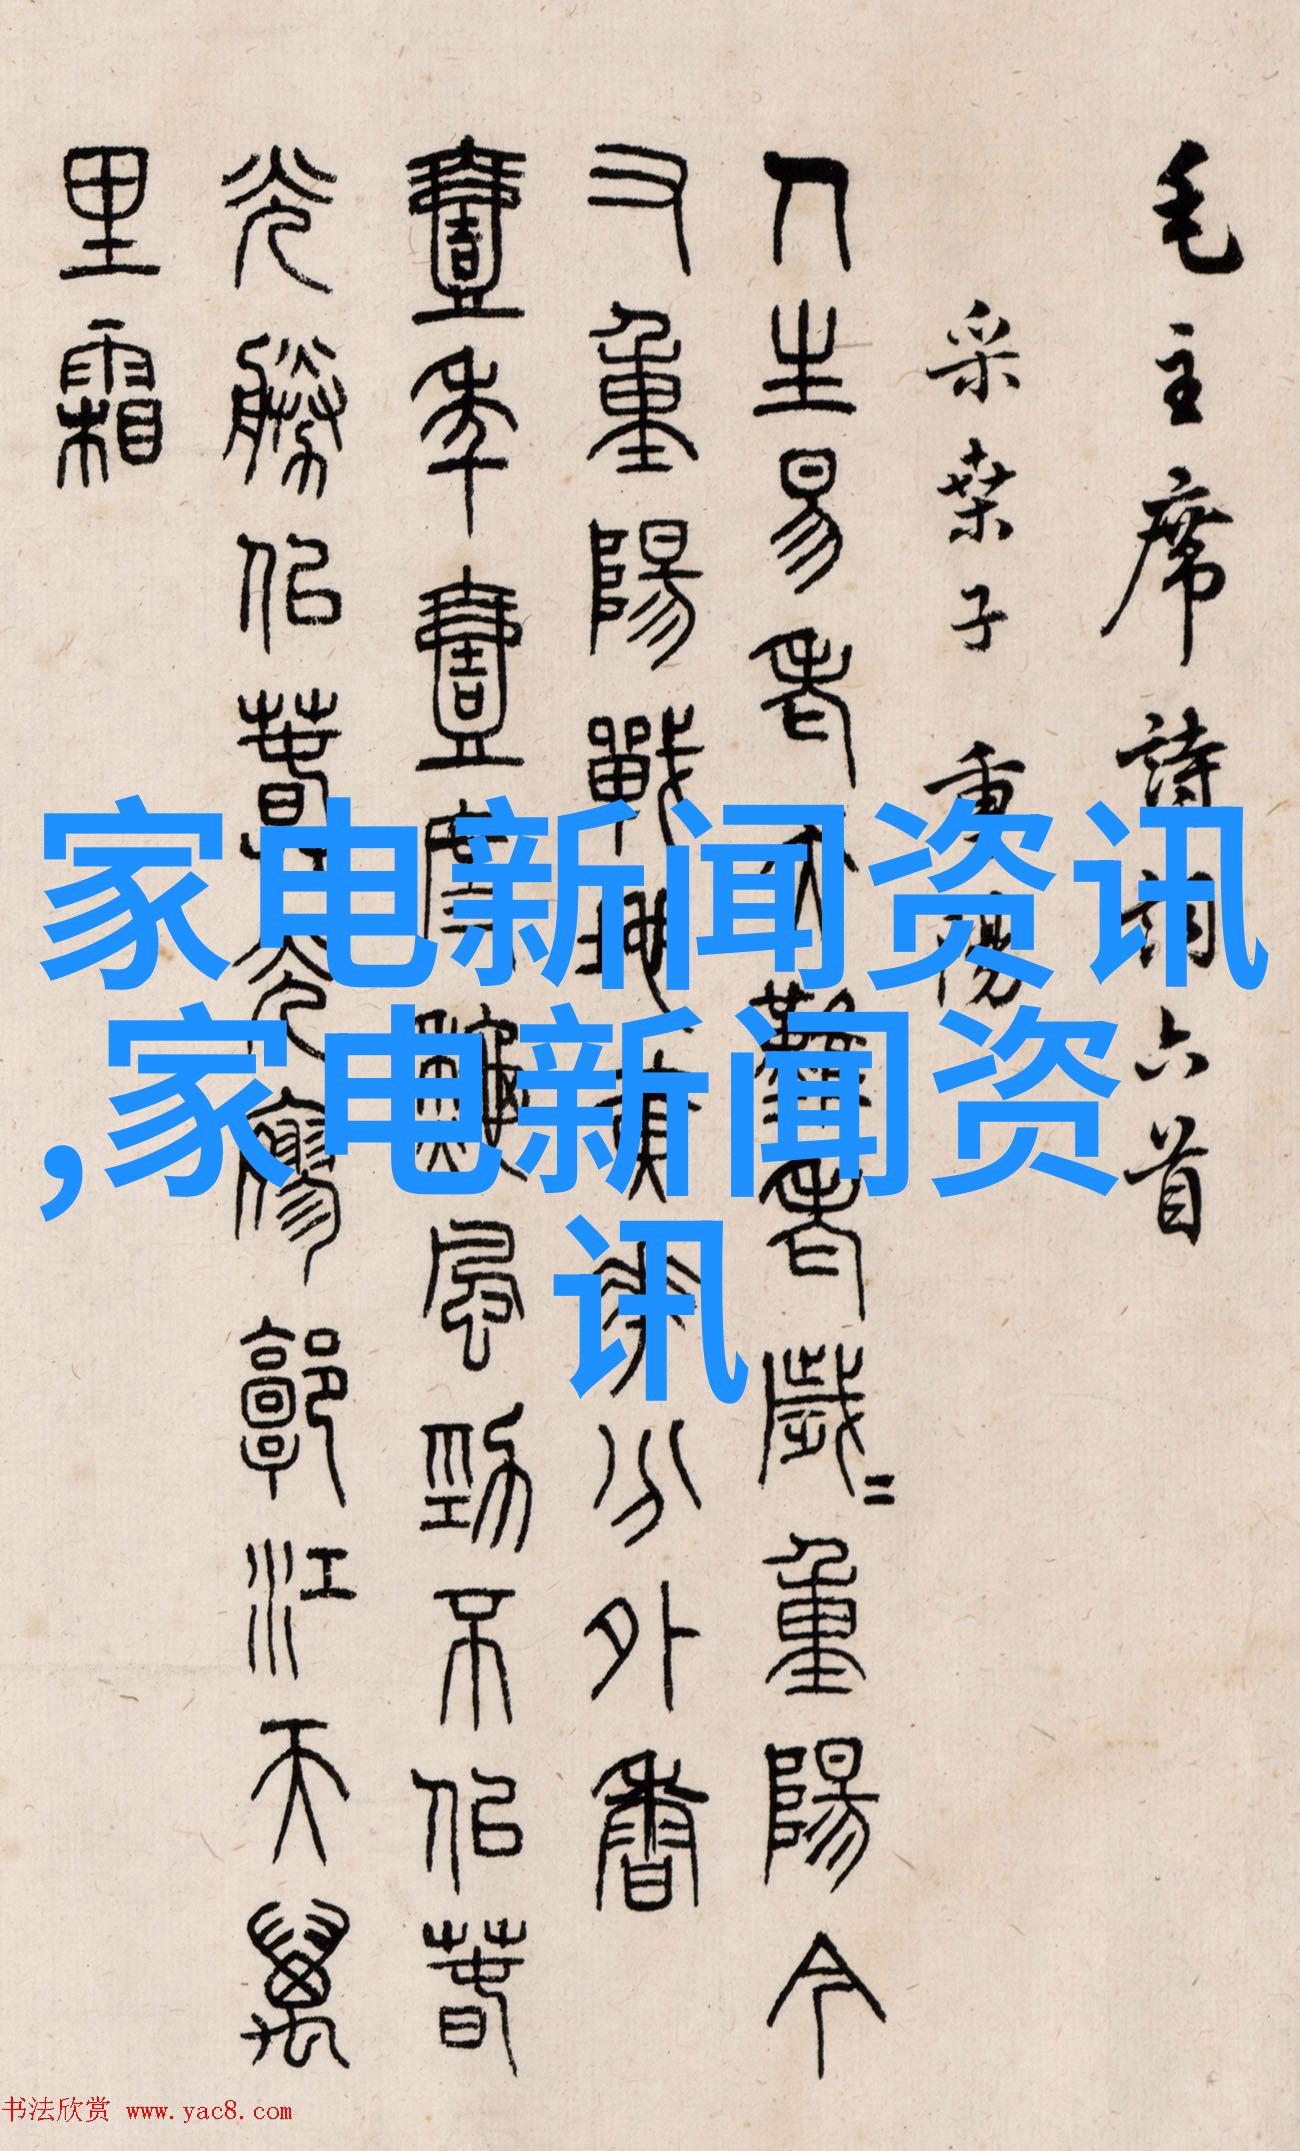 毛主席詩詞六首
采桒子 重陽
人生易老天難老歲〻重陽今
又重陽戰地黃花分外香
壹年壹度秋風勁不似春
光勝似春光寥郭江天萬
里霜
家电新闻资讯
,家电新闻资
讯
书法欣赏 www.yac8.com